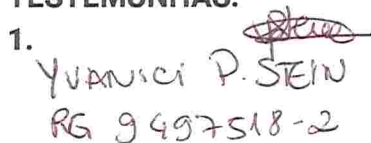 TESTEMUNHAS:
1.
YVANICI P. STEIN
RG 9497518-2